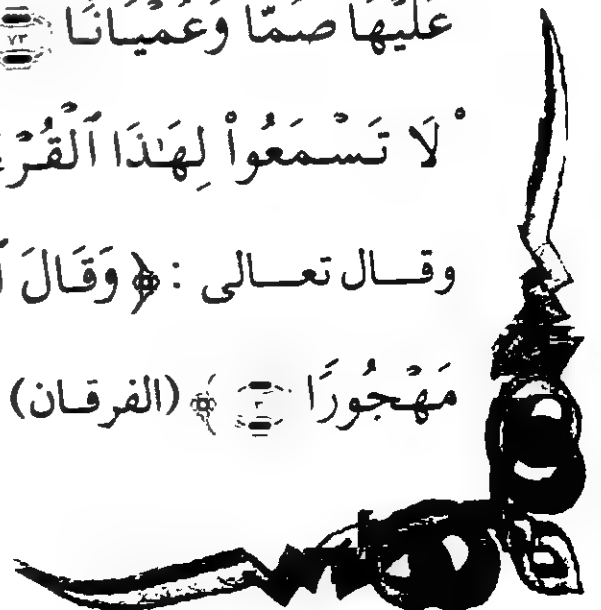 عَلَيْهَا صُمًّا وَعُمْيَانًا ٧٣
لَا تَسْمَعُوا۟ لِهَٰذَا ٱلْقُرْءَ
وقال تعالى : ﴿ وَقَالَ ٱ
مَهْجُورًا ٣ ﴾ (الفرقان)